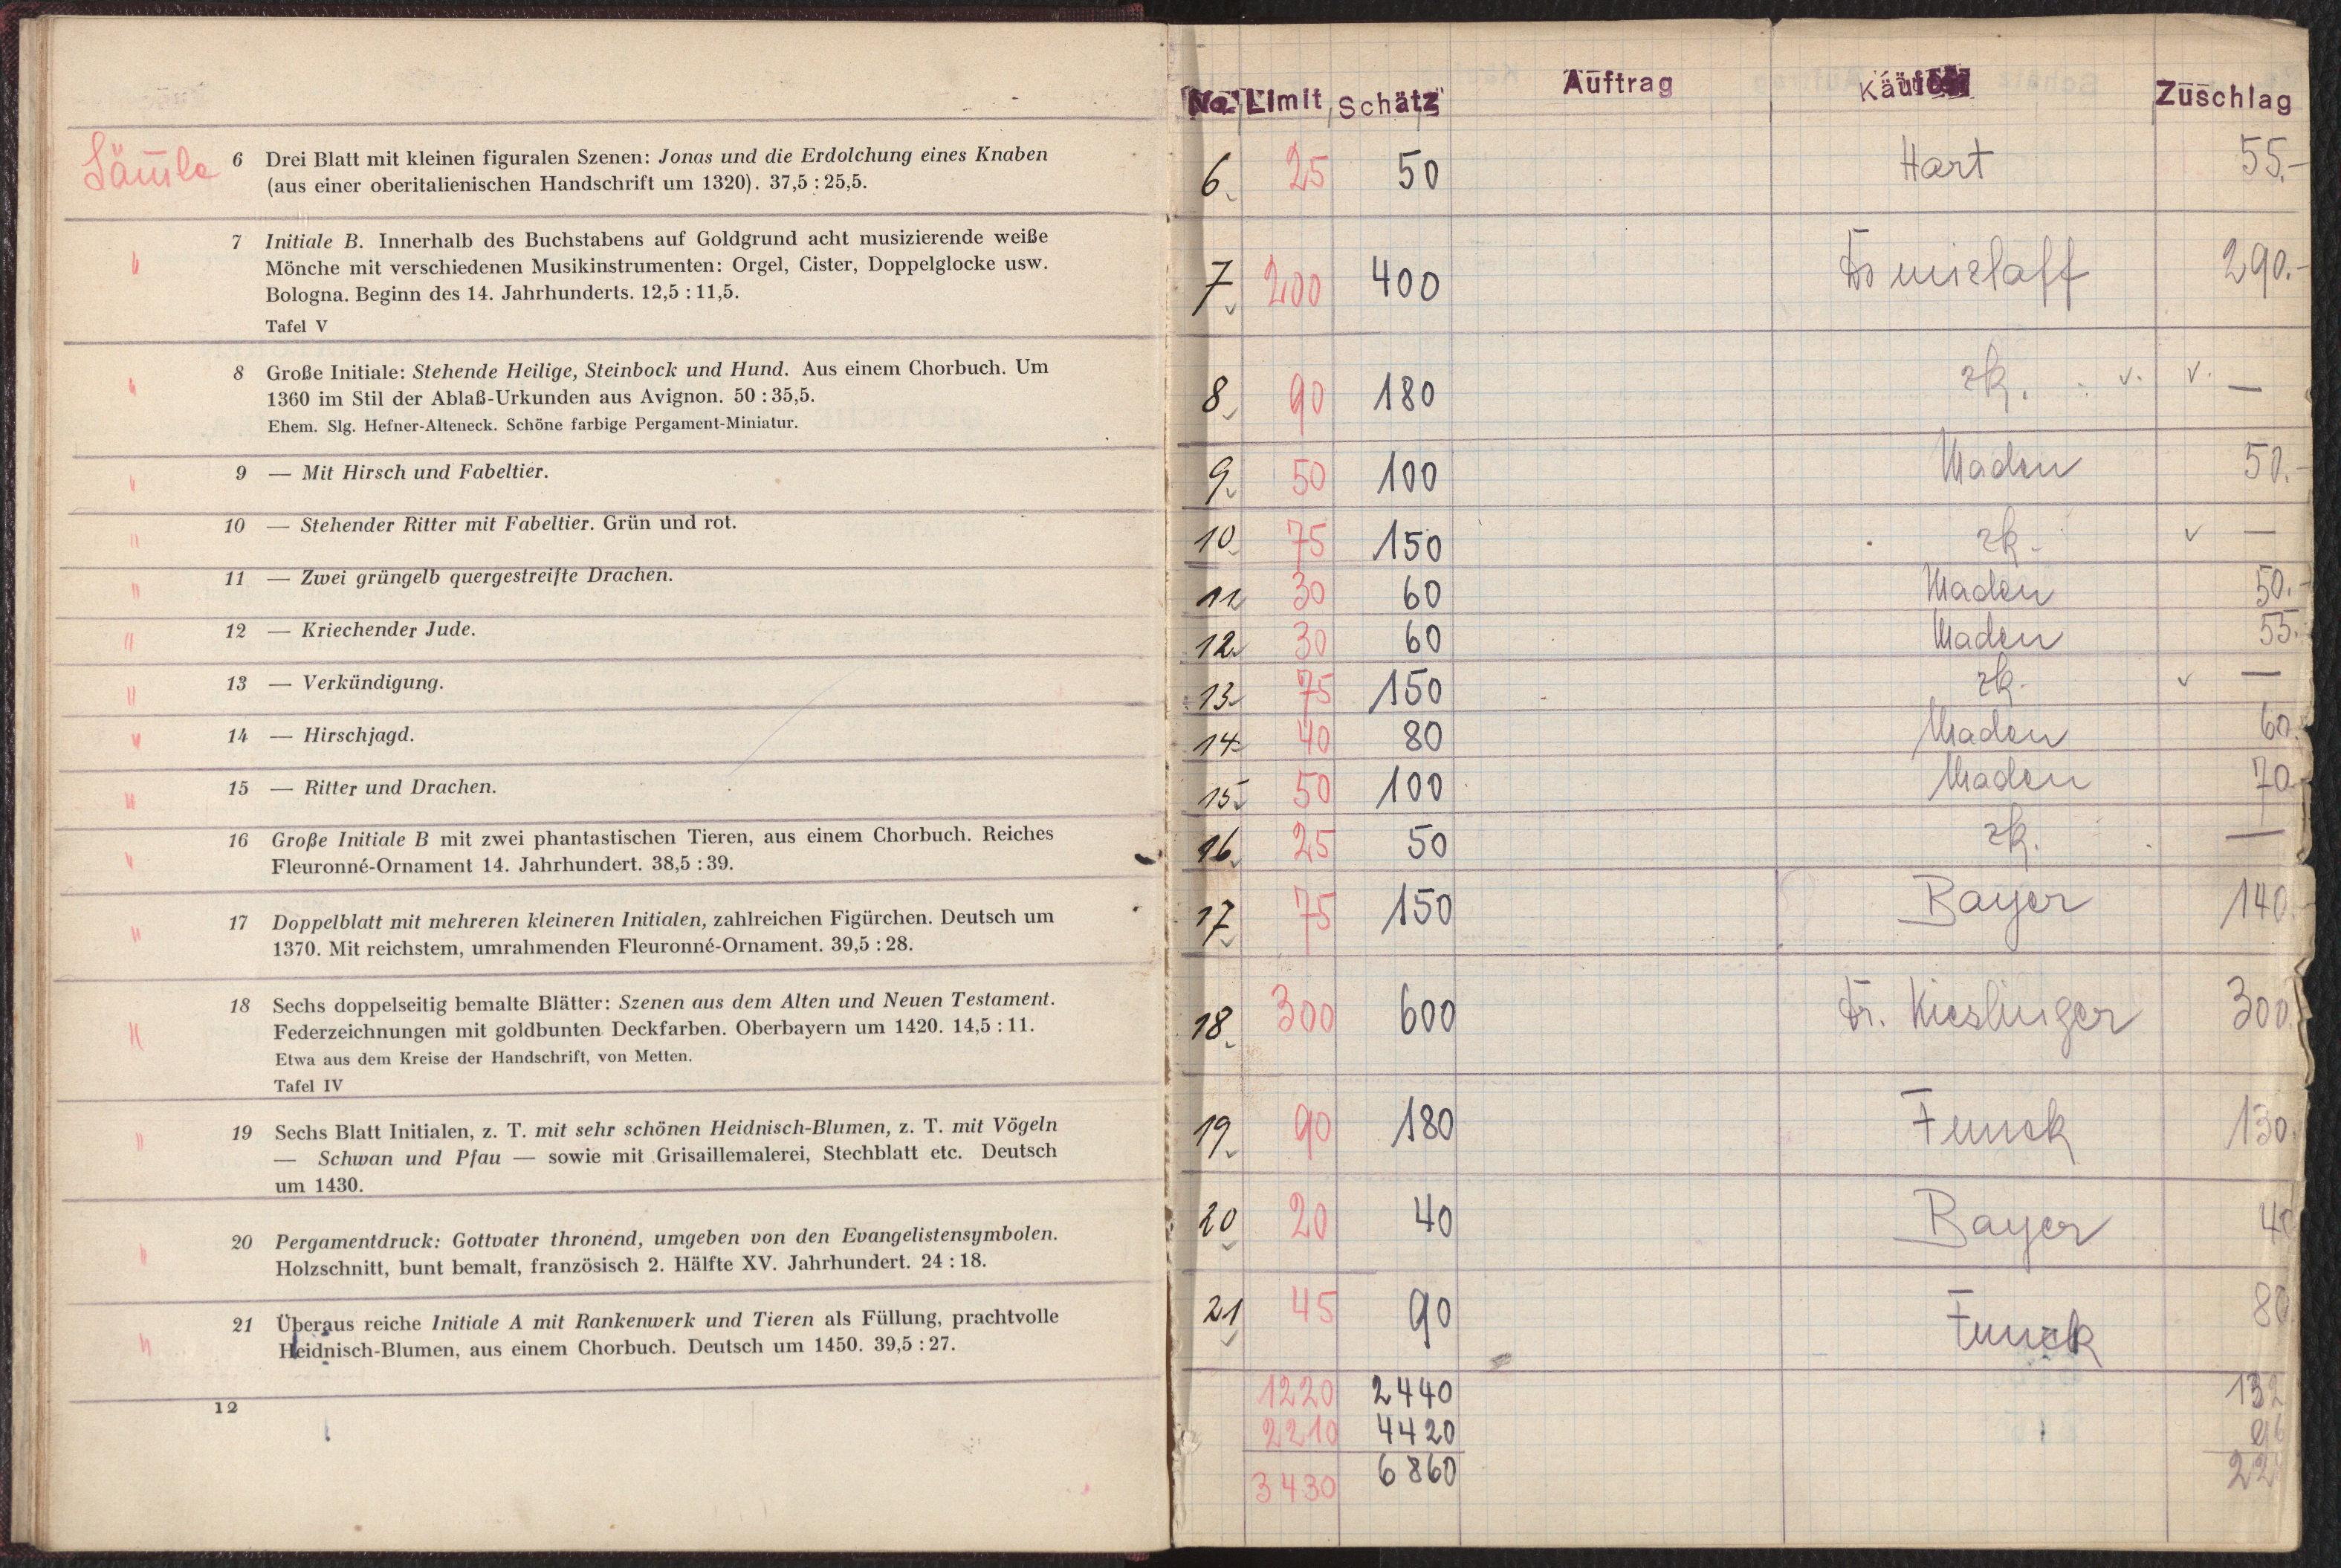 6 Drei Blatt mit kleinen figuralen Szenen: Jonas und die Erdolchung eines Knaben
(aus einer oberitalienischen Handschrift um 1320). 37,5 : 25,5.
7 Initiale B. Innerhalb des Buchstabens auf Goldgrund acht musizierende weiße
" Mönche mit verschiedenen Musikinstrumenten: Orgel, Cister, Doppelglocke usw.
Bologna. Beginn des 14. Jahrhunderts. 12,5 : 11,5.
Tafel V
8 Große Initiale: Stehende Heilige, Steinbock und Hund. Aus einem Chorbuch. Um
" 1360 im Stil der Ablaß-Urkunden aus Avignon. 50 : 35,5.
Ehem. Slg. Hefner-Alteneck. Schöne farbige Pergament-Miniatur.
" 9 — Mit Hirsch und Fabeltier.
" 10 — Stehender Ritter mit Fabeltier. Grün und rot.
" 11 — Zwei grüngelb quergestreifte Drachen.
" 12 — Kriechender Jude.
" 13 — Verkündigung.
" 14 — Hirschjagd.
" 15 — Ritter und Drachen.
16 Große Initiale B mit zwei phantastischen Tieren, aus einem Chorbuch. Reiches
" Fleuronné-Ornament 14. Jahrhundert. 38,5 : 39.
17 Doppelblatt mit mehreren kleineren Initialen, zahlreichen Figürchen. Deutsch um
" 1370. Mit reichstem, umrahmenden Fleuronné-Ornament. 39,5 : 28.
18 Sechs doppelseitig bemalte Blätter: Szenen aus dem Alten und Neuen Testament.
" Federzeichnungen mit goldbunten Deckfarben. Oberbayern um 1420. 14,5 : 11.
Etwa aus dem Kreise der Handschrift, von Metten.
Tafel IV
" 19 Sechs Blatt Initialen, z. T. mit sehr schönen Heidnisch-Blumen, z. T. mit Vögeln
— Schwan und Pfau — sowie mit Grisaillemalerei, Stechblatt etc. Deutsch
um 1430.
" 20 Pergamentdruck: Gottvater thronend, umgeben von den Evangelistensymbolen.
Holzschnitt, bunt bemalt, französisch 2. Hälfte XV. Jahrhundert. 24 : 18.
21 Überaus reiche Initiale A mit Rankenwerk und Tieren als Füllung, prachtvolle
" Heidnisch-Blumen, aus einem Chorbuch. Deutsch um 1450. 39,5 : 27.
12
No. Limit Schätz Auftrag Käufer Zuschlag
6. 25 50 Hart 55.-
7. 200 400 290.-
8. 90 180 zk. v. v. —
9. 50 100 Maden 50.-
10. 75 150 zk. v —
11 30 60 Maden 50.-
12. 30 60 Maden 55.
13. 75 150 zk. v —
14. 40 80 Maden 60.
15. 50 100 Maden 70
16. 25 50 zk. —
17. 75 150 Bayer 140
18. 300 600 Dr. Kieslinger 300
19. 90 180 Funck 130
20 20 40 Bayer 40
21 45 90 Funck 80
1220 2440 132
2210 4420
3430 6860 22